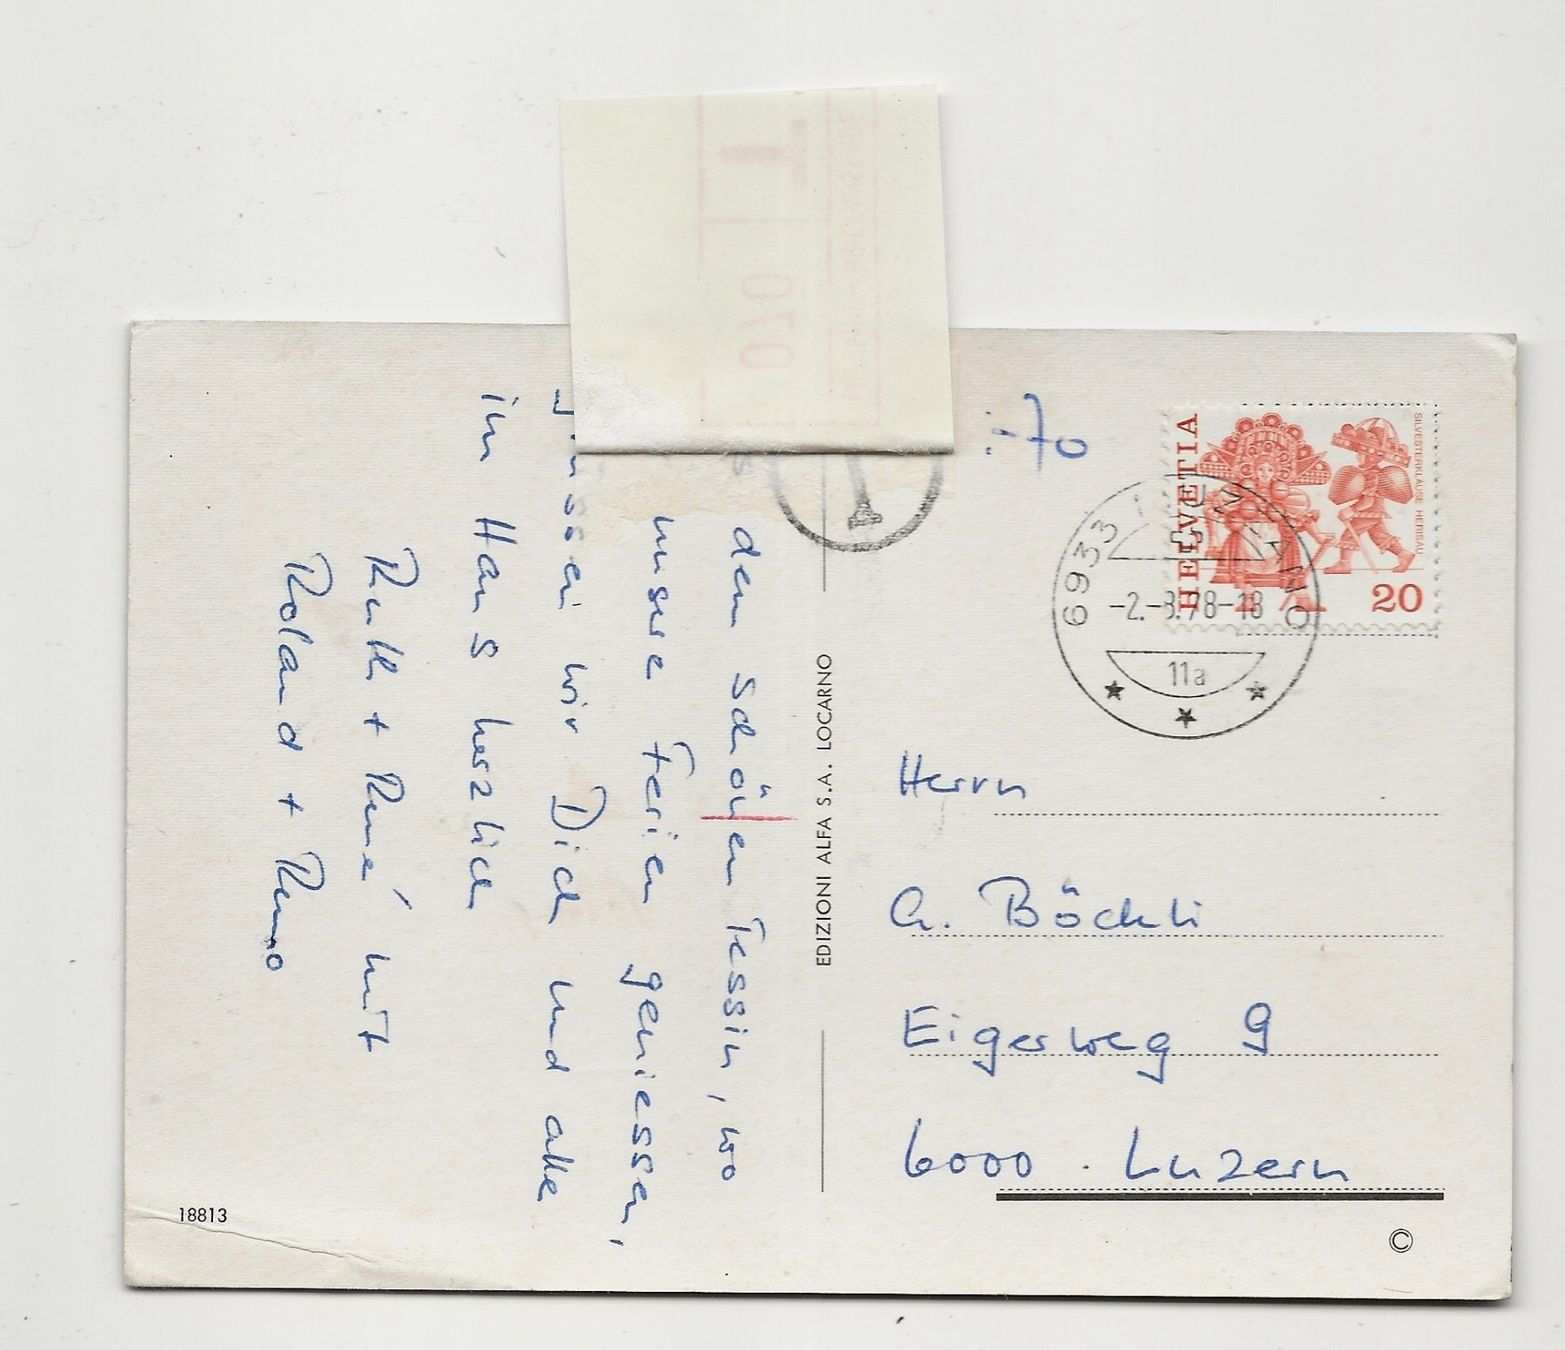 T
070
70
HELVETIA
SILVESTERKLÄUSE HERISAU
20
6933 MUZZANO
-2.-8.78-18
11a
T
Herrn
A. Böckli
Eigerweg 9
6000 Luzern
©
EDIZIONI ALFA S.A. LOCARNO
dem schönen Tessin, wo
unsere Ferien geniessen,
wir Dich und alle
im Haus herzlich
Ruth + René mit
Roland + Remo
18813